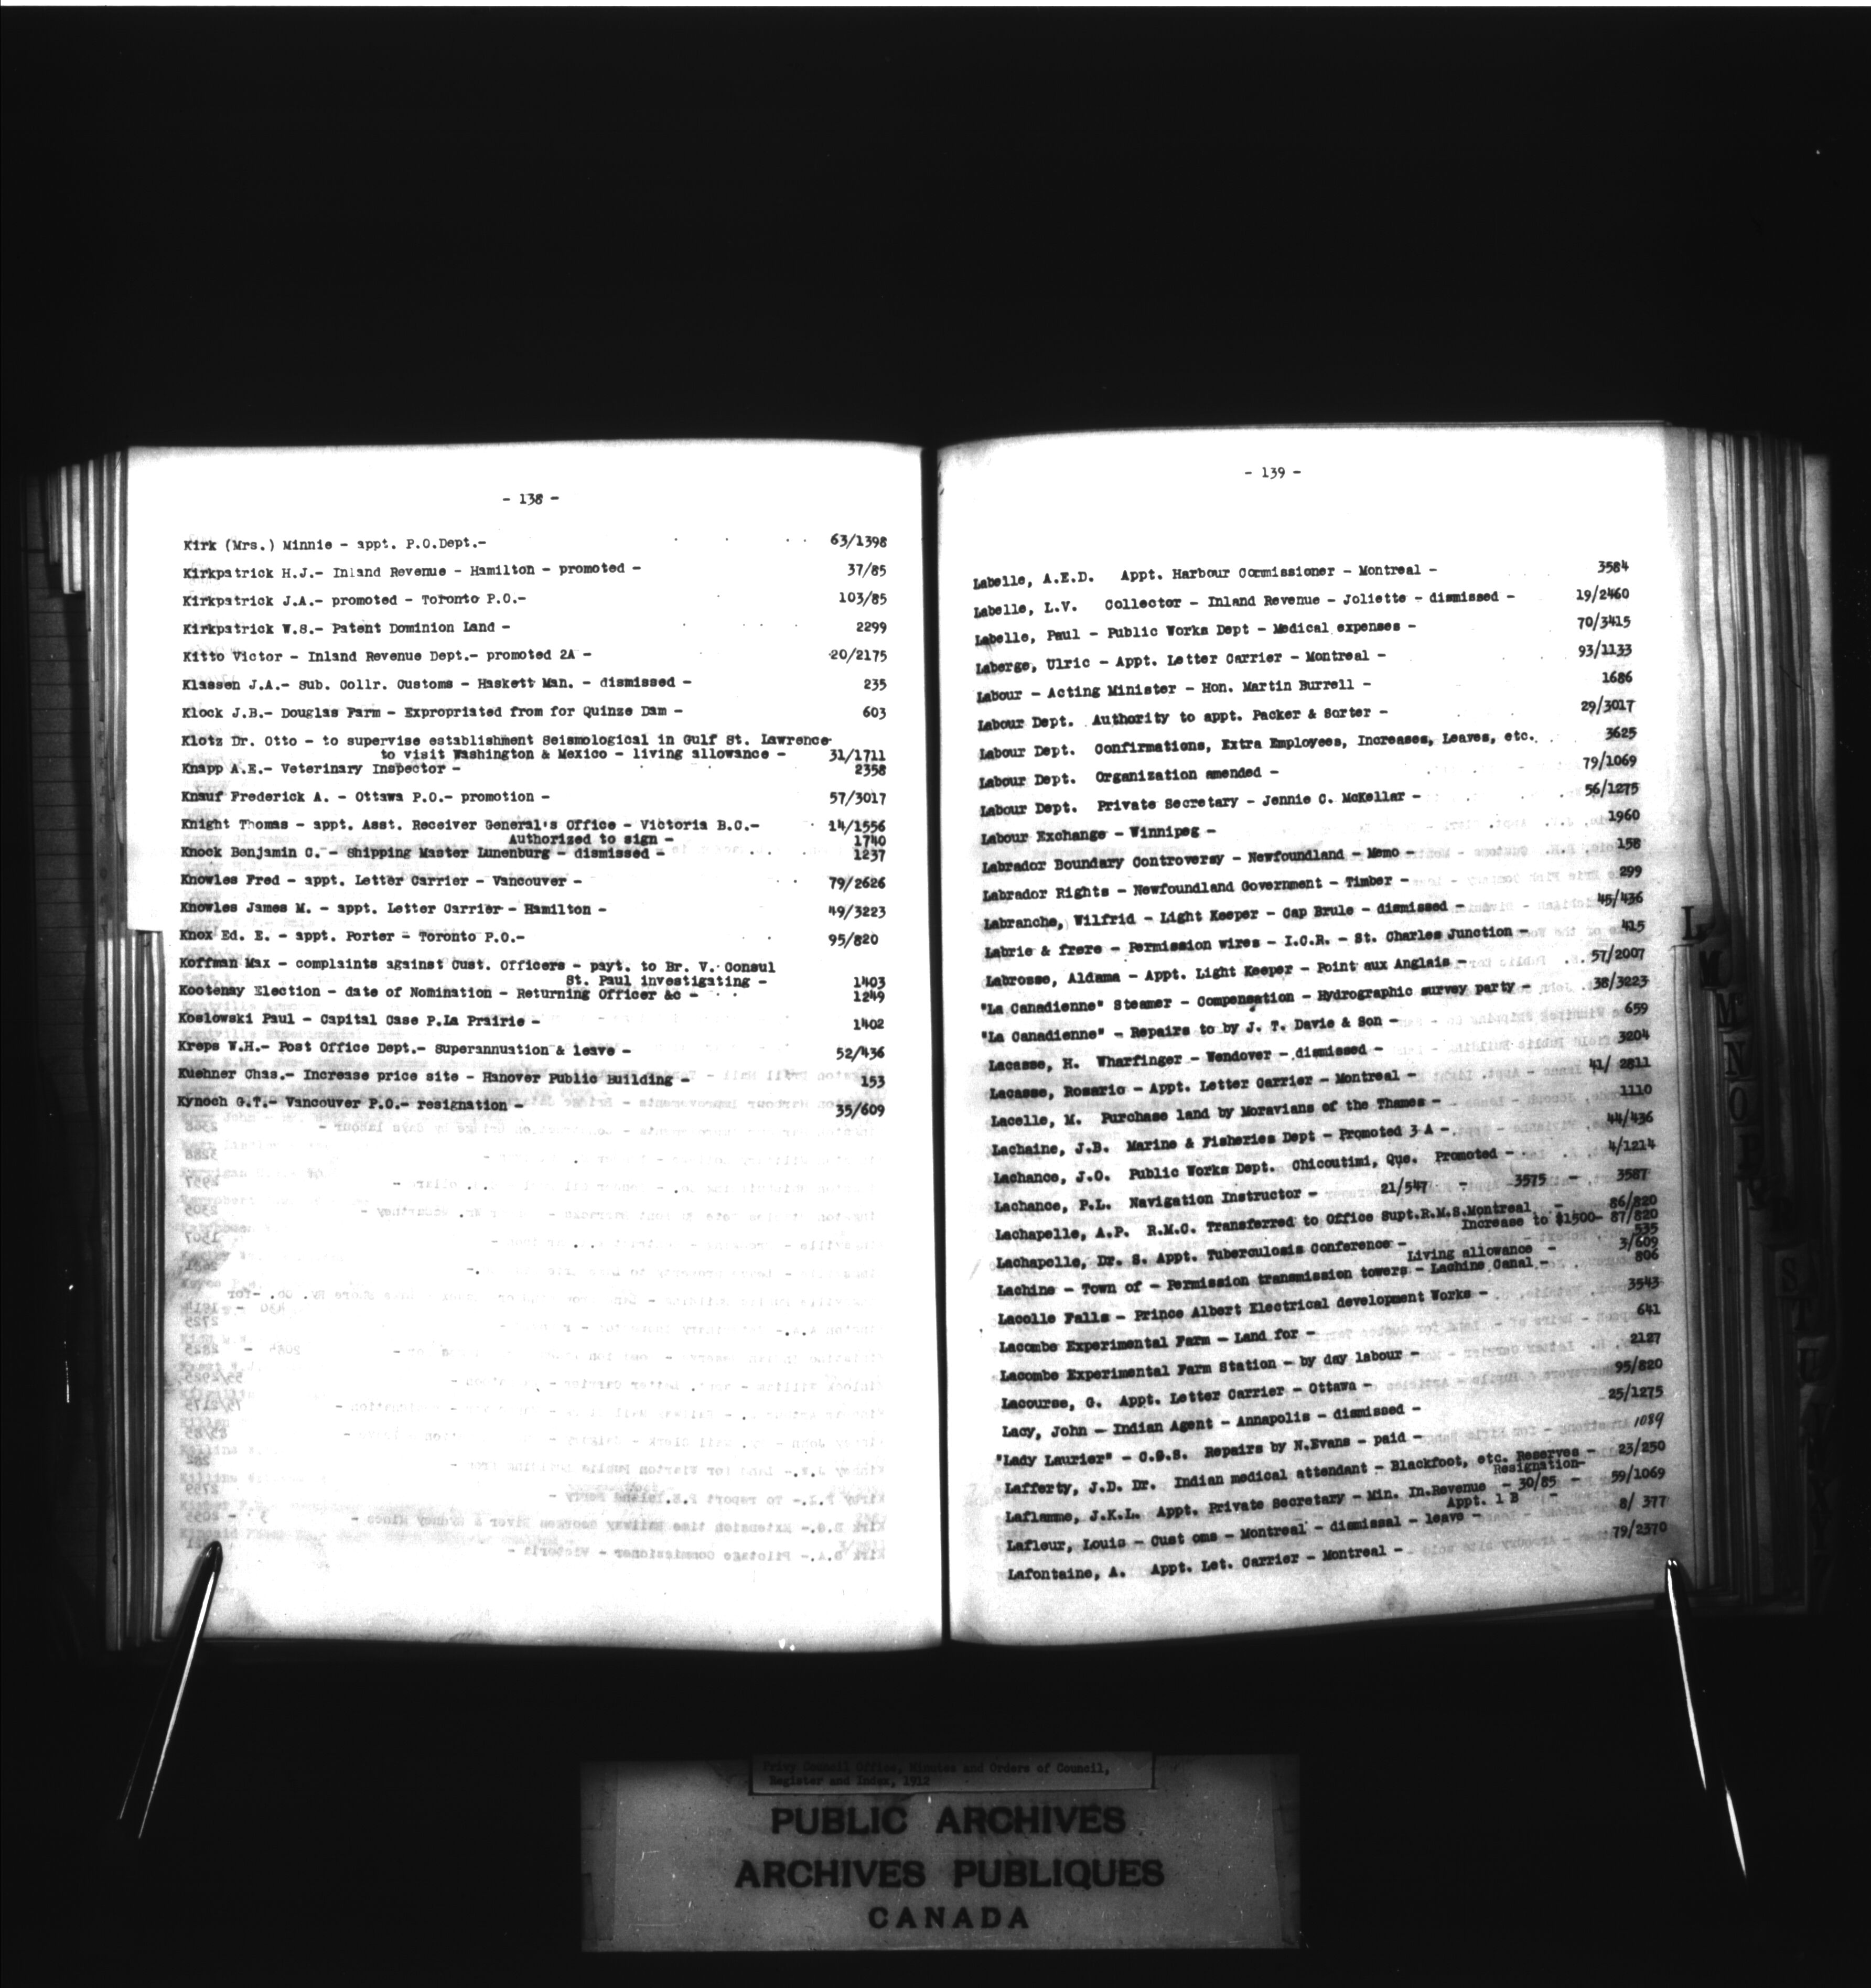 - 138 -
Kirk (Mrs.) Minnie - appt. P.O.Dept.- 63/1398
Kirkpatrick H.J.- Inland Revenue - Hamilton - promoted - 37/85
Kirkpatrick J.A.- promoted - Toronto P.O.- 103/85
Kirkpatrick W.S.- Patent Dominion Land - 2299
Kitto Victor - Inland Revenue Dept.- promoted 2A - 20/2175
Klassen J.A.- Sub. Collr. Customs - Haskett Man. - dismissed - 235
Klock J.B.- Douglas Farm - Expropriated from for Quinze Dam - 603
Klotz Dr. Otto - to supervise establishment Seismological in Gulf St. Lawrence
to visit Washington & Mexico - living allowance - 31/1711
Knapp A.E.- Veterinary Inspector - 2358
Knauf Frederick A. - Ottawa P.O.- promotion - 57/3017
Knight Thomas - appt. Asst. Receiver General's Office - Victoria B.C.- 14/1556
Authorized to sign - 1740
Knock Benjamin C. - Shipping Master Lunenburg - dismissed - 1237
Knowles Fred - appt. Letter Carrier - Vancouver - 79/2626
Knowles James M. - appt. Letter Carrier - Hamilton - 49/3223
Knox Ed. E. - appt. Porter - Toronto P.O.- 95/820
Koffman Max - complaints against Cust. Officers - payt. to Br. V. Consul
St. Paul investigating - 1403
Kootenay Election - date of Nomination - Returning Officer &c - 1249
Koslowski Paul - Capital Case P.La Prairie - 1402
Kreps W.H.- Post Office Dept.- Superannuation & leave - 52/436
Kuehner Chas.- Increase price site - Hanover Public Building - 153
Kynoch G.T.- Vancouver P.O.- resignation - 35/609
- 139 -
Labelle, A.E.D. Appt. Harbour Commissioner - Montreal - 3584
Labelle, L.V. Collector - Inland Revenue - Joliette - dismissed - 19/2460
Labelle, Paul - Public Works Dept - Medical expenses - 70/3415
Laberge, Ulric - Appt. Letter Carrier - Montreal - 93/1133
Labour - Acting Minister - Hon. Martin Burrell - 1686
Labour Dept. Authority to appt. Packer & Sorter - 29/3017
Labour Dept. Confirmations, Extra Employees, Increases, Leaves, etc. 3625
Labour Dept. Organization amended - 79/1069
Labour Dept. Private Secretary - Jennie C. McKellar - 56/1275
Labour Exchange - Winnipeg - 1960
Labrador Boundary Controversy - Newfoundland - Memo - 158
Labrador Rights - Newfoundland Government - Timber - 299
Labranche, Wilfrid - Light Keeper - Cap Brule - dismissed - 45/436
Labrie & frere - Permission wires - I.C.R. - St. Charles Junction - 415
Labrosse, Aldama - Appt. Light Keeper - Point aux Anglais - 57/2007
"La Canadienne" Steamer - Compensation - Hydrographic survey party - 38/3223
"La Canadienne" - Repairs to by J. T. Davie & Son - 659
Lacasse, H. Wharfinger - Wendover - dismissed - 3204
Lacasse, Rosario - Appt. Letter Carrier - Montreal - 41/ 2811
Lacelle, M. Purchase land by Moravians of the Thames - 1110
Lachaine, J.B. Marine & Fisheries Dept - Promoted 3 A - 44/436
Lachance, J.O. Public Works Dept. Chicoutimi, Que. Promoted - 4/1214
Lachance, P.L. Navigation Instructor - 21/547 - 3575 - 3587
Lachapelle, A.P. R.M.C. Transferred to Office Supt.R.M.S.Montreal - 86/820
Increase to $1500- 87/820
Lachapelle, Dr. S. Appt. Tuberculosis Conference - 535
Living allowance - 3/609
Lachine - Town of - Permission transmission towers - Lachine Canal - 806
Lacolle Falls - Prince Albert Electrical development Works - 3543
Lacombe Experimental Farm - Land for - 641
Lacombe Experimental Farm Station - by day labour - 2127
Lacourse, G. Appt. Letter Carrier - Ottawa - 95/820
Lacy, John - Indian Agent - Annapolis - dismissed - 25/1275
"Lady Laurier" - C.G.S. Repairs by N.Evans - paid - 1089
Lafferty, J.D. Dr. Indian medical attendant - Blackfoot, etc. Reserves - 23/250
Resignation-
Laflamme, J.K.L. Appt. Private Secretary - Min. In.Revenue - 30/85 - 59/1069
Appt. 1 B -
Lafleur, Louis - Cust oms - Montreal - dismissal - leave - 8/ 377
Lafontaine, A. Appt. Let. Carrier - Montreal - 79/2370
L
M
N
O
Privy Council Office, Minutes and Orders of Council,
Register and Index, 1912
PUBLIC ARCHIVES
ARCHIVES PUBLIQUES
CANADA